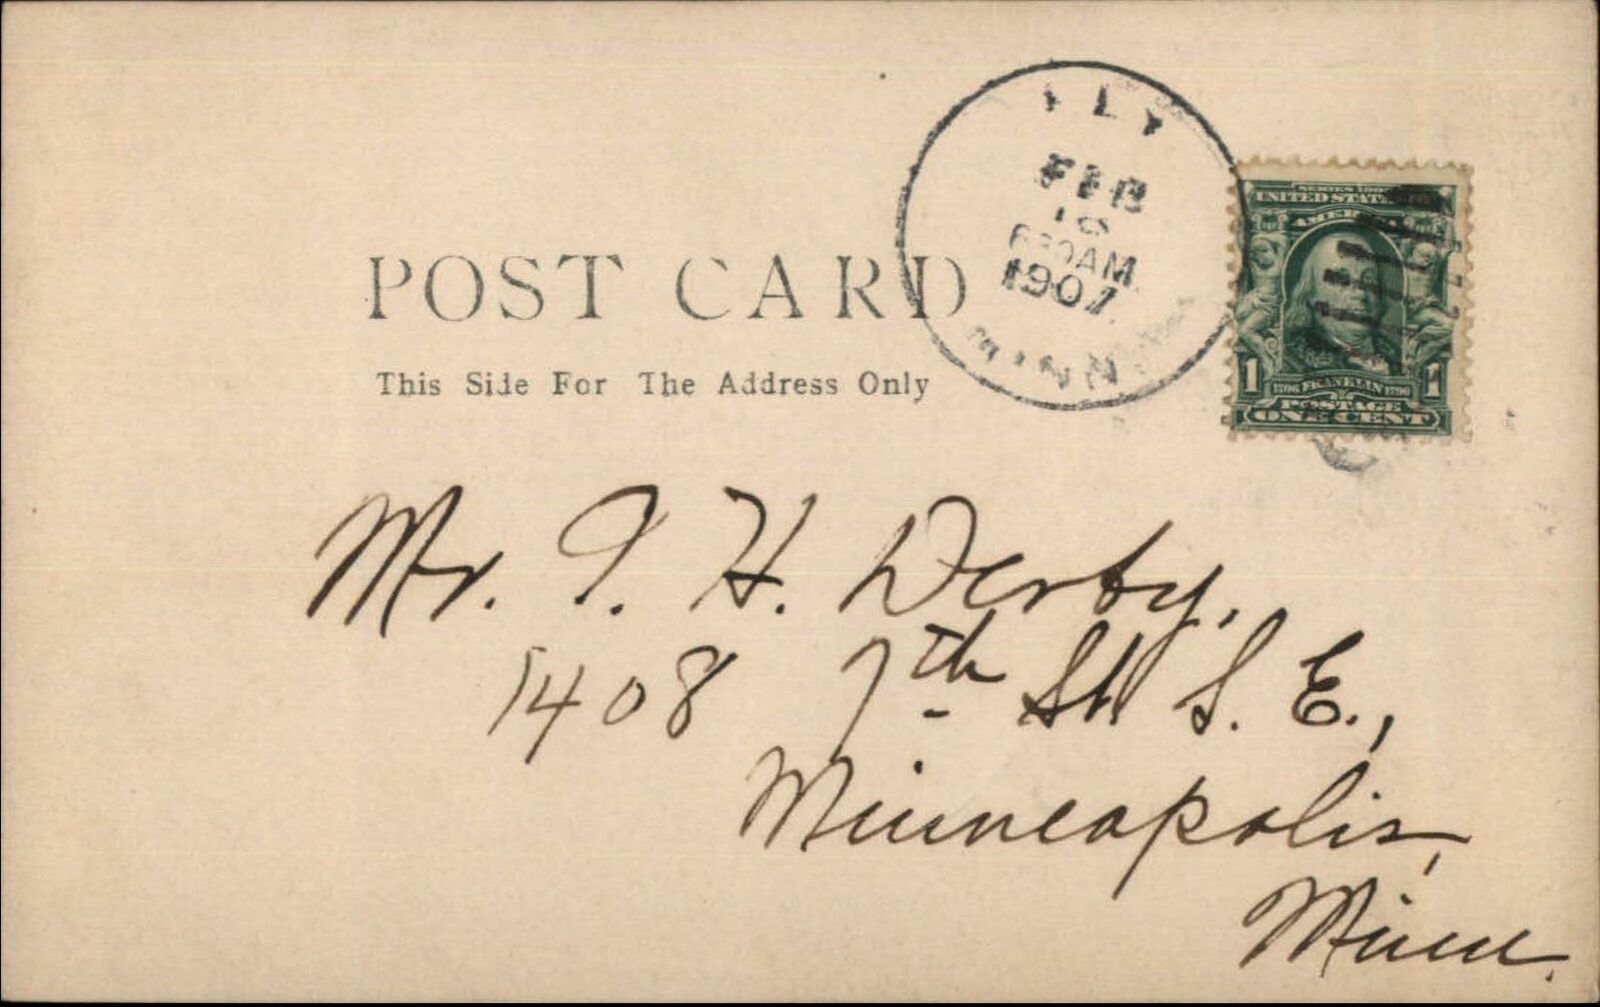 ELY
FEB
18
630AM
1907
MINN
SERIES 1902
UNITED STATES
AMERICA
POST CARD
This Side For The Address Only
1 1
1706 FRANKLIN 1790
POSTAGE
ONE CENT
Mr. I. H. Derby,
1408 7th St. S. E.,
Minneapolis,
Minn.